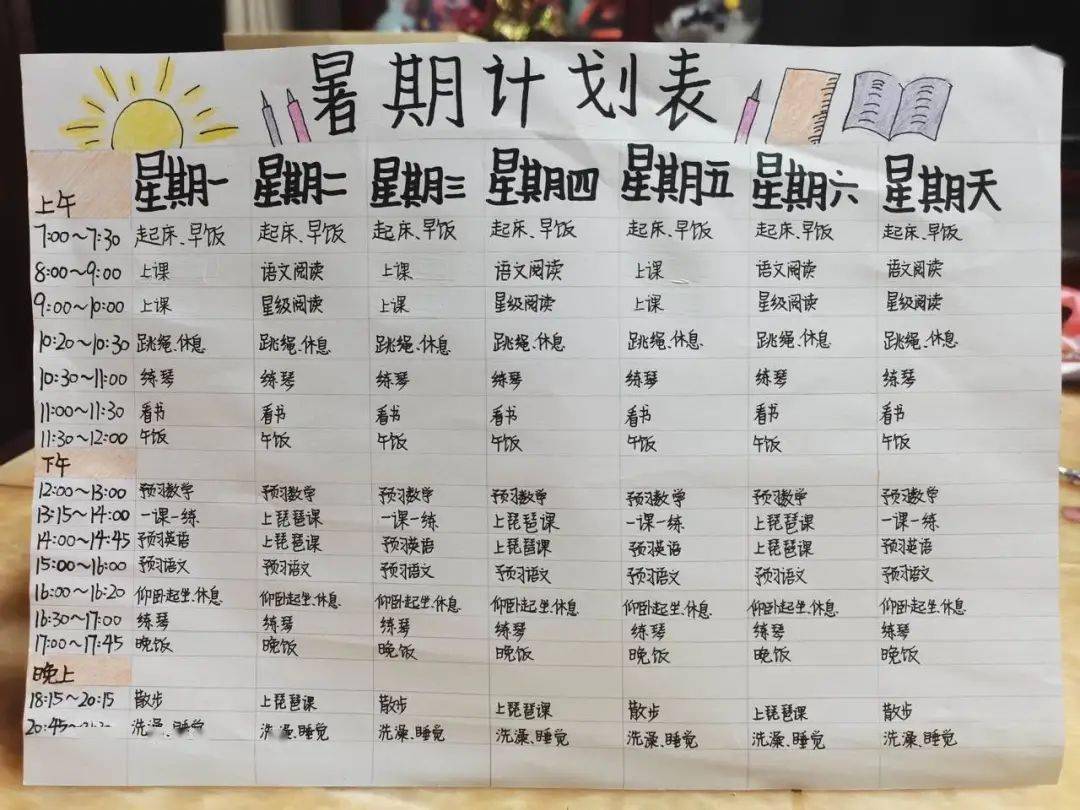 暑期计划表
上午 星期一 星期二 星期三 星期四 星期五 星期六 星期天
7:00~7:30 起床、早饭 起床、早饭 起床、早饭 起床、早饭 起床、早饭 起床、早饭 起床、早饭
8:00~9:00 上课 语文阅读 上课 语文阅读 上课 语文阅读 语文阅读
9:00~10:00 上课 星级阅读 上课 星级阅读 上课 星级阅读 星级阅读
10:20~10:30 跳绳、休息 跳绳、休息 跳绳、休息 跳绳、休息 跳绳、休息 跳绳、休息 跳绳、休息
10:30~11:00 练琴 练琴 练琴 练琴 练琴 练琴 练琴
11:00~11:30 看书 看书 看书 看书 看书 看书 看书
11:30~12:00 午饭 午饭 午饭 午饭 午饭 午饭 午饭
下午
12:00~13:00 预习数学 预习数学 预习数学 预习数学 预习数学 预习数学 预习数学
13:15~14:00 一课一练 上琵琶课 一课一练 上琵琶课 一课一练 上琵琶课 一课一练
14:00~14:45 预习英语 上琵琶课 预习英语 上琵琶课 预习英语 上琵琶课 预习英语
15:00~16:00 预习语文 预习语文 预习语文 预习语文 预习语文 预习语文 预习语文
16:00~16:20 仰卧起坐、休息 仰卧起坐、休息 仰卧起坐、休息 仰卧起坐、休息 仰卧起坐、休息 仰卧起坐、休息 仰卧起坐、休息
16:30~17:00 练琴 练琴 练琴 练琴 练琴 练琴 练琴
17:00~17:45 晚饭 晚饭 晚饭 晚饭 晚饭 晚饭 晚饭
晚上
18:15~20:15 散步 上琵琶课 散步 上琵琶课 散步 上琵琶课 散步
20:45~ 洗澡、睡觉 洗澡、睡觉 洗澡、睡觉 洗澡、睡觉 洗澡、睡觉 洗澡、睡觉 洗澡、睡觉